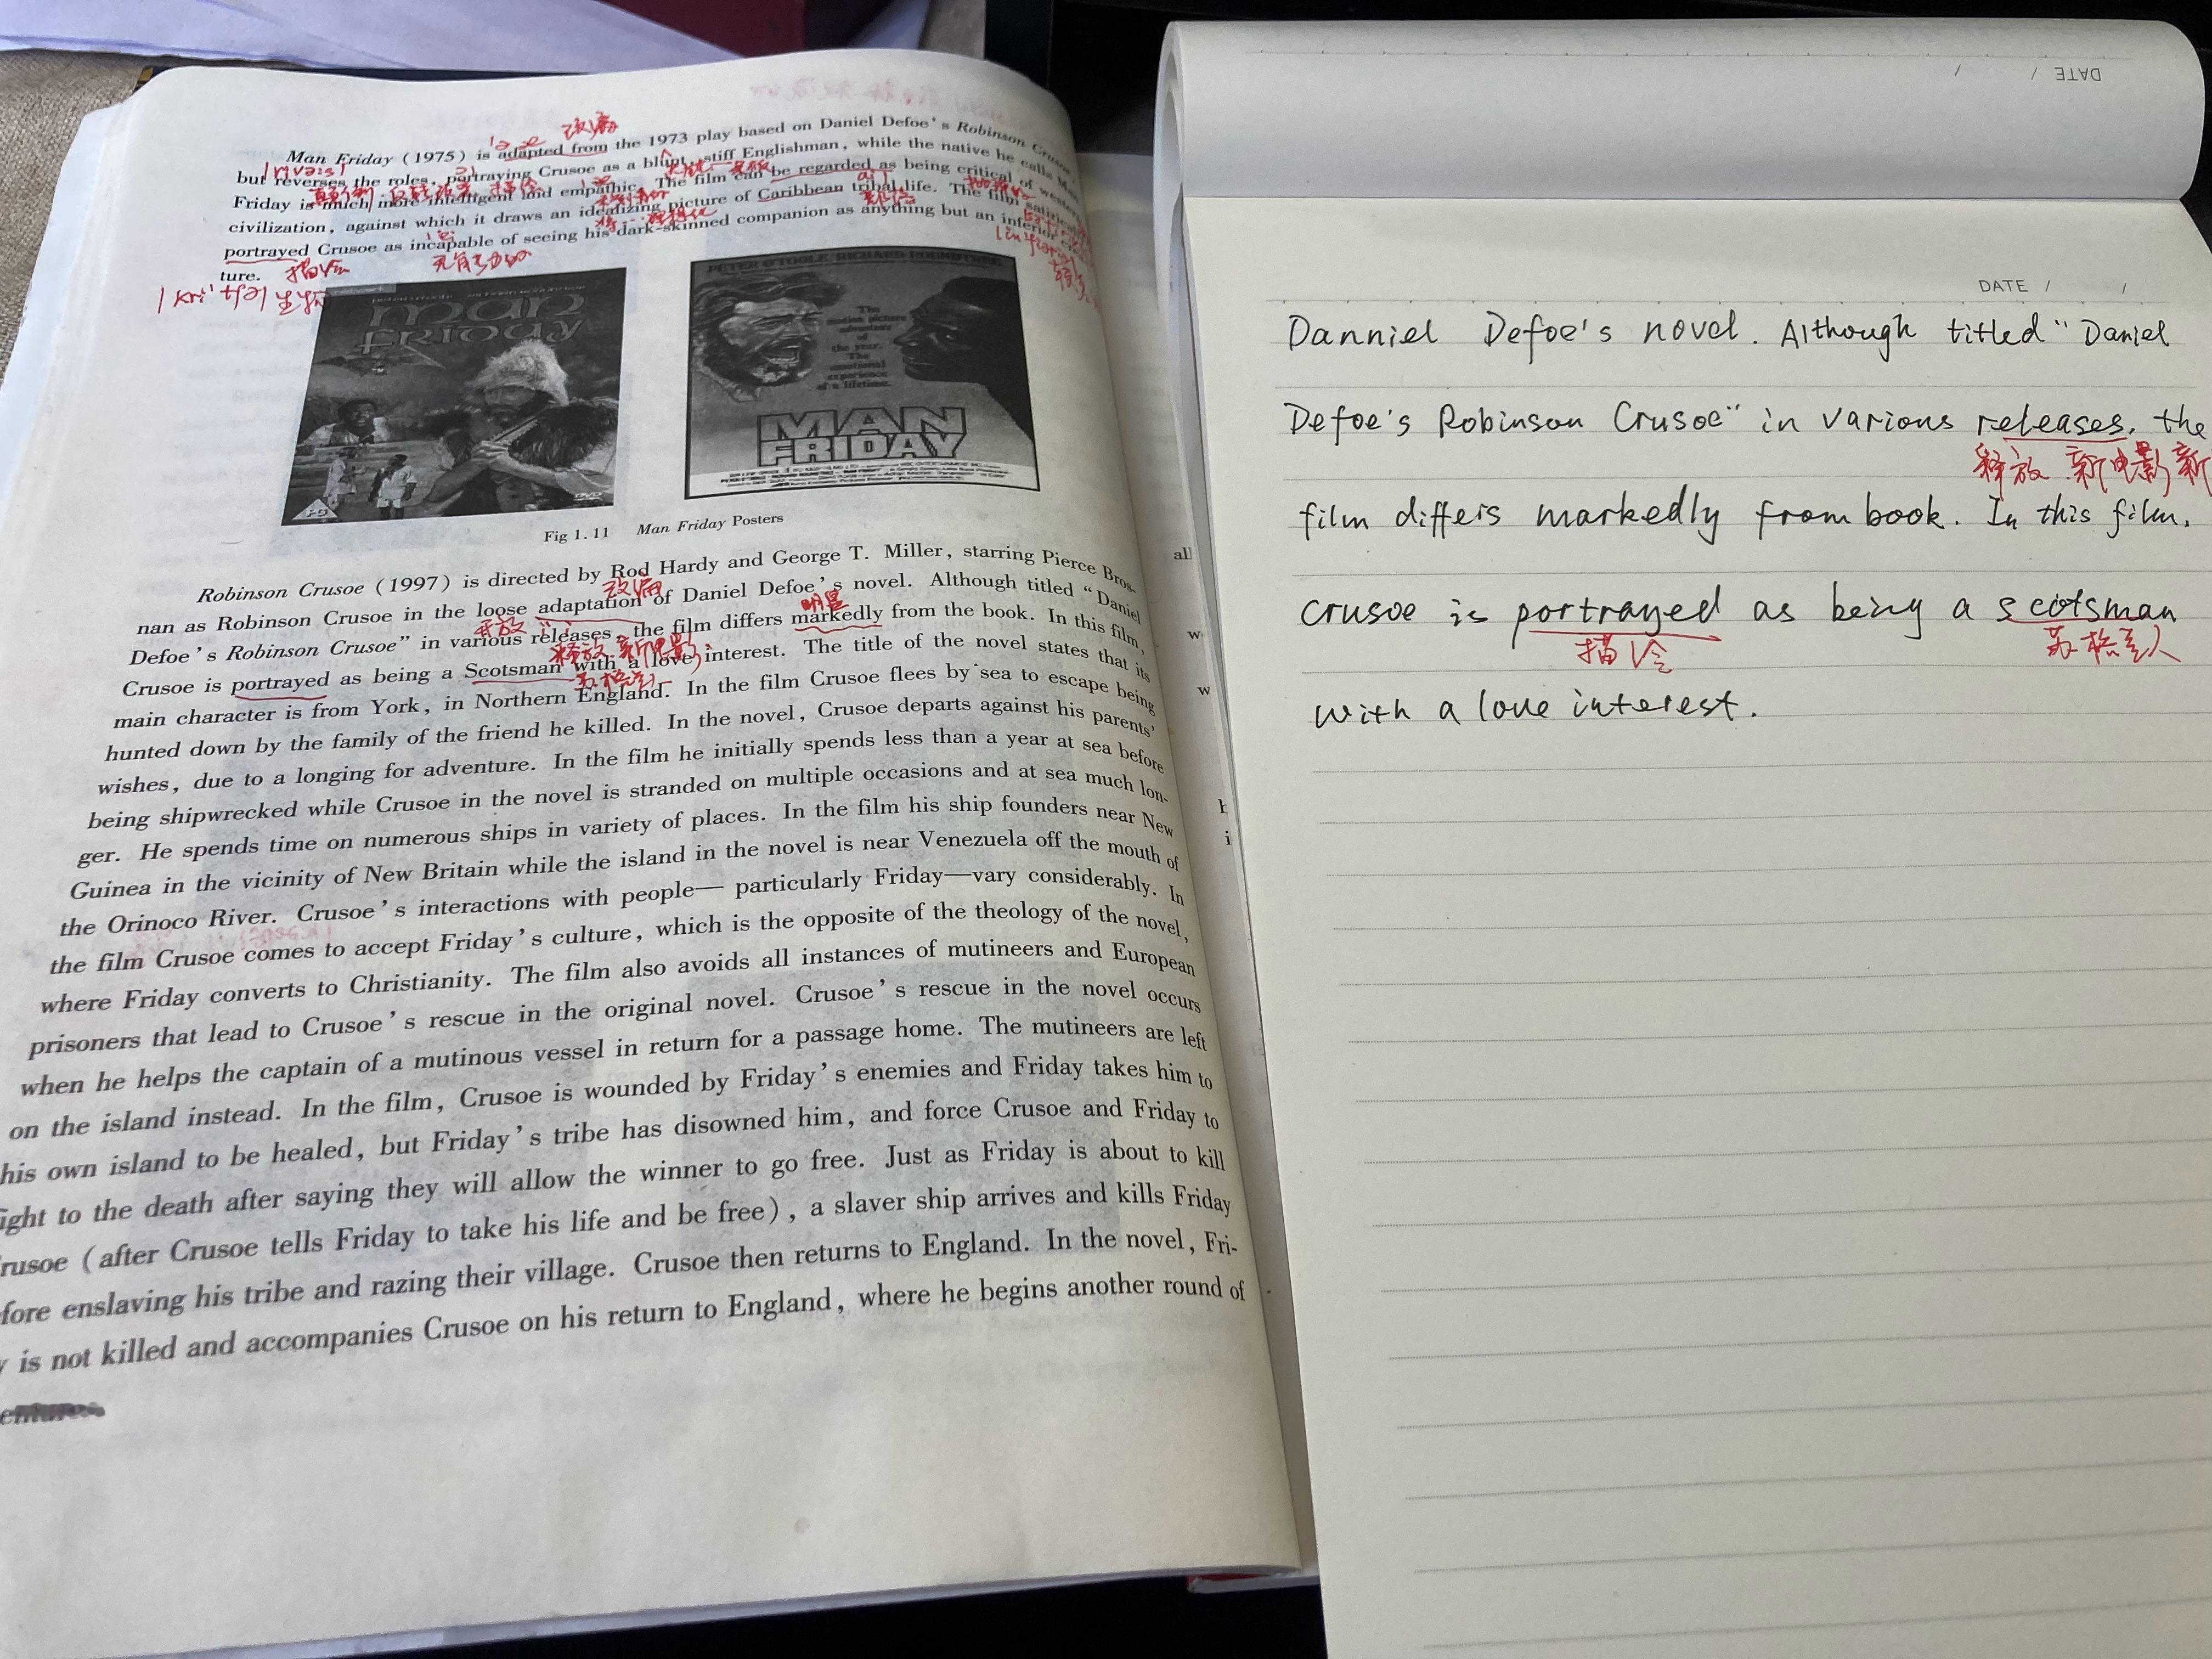 Man Friday (1975) is adapted from the 1973 play based on Daniel Defoe's Robinson Crusoe,
改编
but reverses the roles, portraying Crusoe as a blunt, stiff Englishman, while the native he calls Man
Friday is much more intelligent and empathic. The film can be regarded as being critical of western
civilization, against which it draws an idealizing picture of Caribbean tribal life. The film
portrayed Crusoe as incapable of seeing his dark-skinned companion as anything but an inferior
描绘
ture.
MAN
FRIDAY
DVD
PETER O'TOOLE RICHARD ROUNDTREE
The
motion picture
adventure
of the year.
The
emotional
experience
of a lifetime.
MAN
FRIDAY
Fig 1.11 Man Friday Posters
Robinson Crusoe (1997) is directed by Rod Hardy and George T. Miller, starring Pierce Bros-
改编
nan as Robinson Crusoe in the loose adaptation of Daniel Defoe's novel. Although titled "Daniel
明显
Defoe's Robinson Crusoe" in various releases, the film differs markedly from the book. In this film,
释放 新电影
Crusoe is portrayed as being a Scotsman with a love interest. The title of the novel states that its
苏格兰
main character is from York, in Northern England. In the film Crusoe flees by sea to escape being
hunted down by the family of the friend he killed. In the novel, Crusoe departs against his parents'
wishes, due to a longing for adventure. In the film he initially spends less than a year at sea before
being shipwrecked while Crusoe in the novel is stranded on multiple occasions and at sea much lon-
ger. He spends time on numerous ships in variety of places. In the film his ship founders near New
Guinea in the vicinity of New Britain while the island in the novel is near Venezuela off the mouth of
the Orinoco River. Crusoe's interactions with people— particularly Friday—vary considerably. In
the film Crusoe comes to accept Friday's culture, which is the opposite of the theology of the novel,
where Friday converts to Christianity. The film also avoids all instances of mutineers and European
prisoners that lead to Crusoe's rescue in the original novel. Crusoe's rescue in the novel occurs
when he helps the captain of a mutinous vessel in return for a passage home. The mutineers are left
on the island instead. In the film, Crusoe is wounded by Friday's enemies and Friday takes him to
his own island to be healed, but Friday's tribe has disowned him, and force Crusoe and Friday to
ight to the death after saying they will allow the winner to go free. Just as Friday is about to kill
rusoe (after Crusoe tells Friday to take his life and be free), a slaver ship arrives and kills Friday
fore enslaving his tribe and razing their village. Crusoe then returns to England. In the novel, Fri-
y is not killed and accompanies Crusoe on his return to England, where he begins another round of
all
w
w
i
DATE / /
DATE / /
Danniel Defoe's novel. Although titled "Daniel
Defoe's Robinson Crusoe" in various releases, the
释放 新电影 新
film differs markedly from book. In this film,
Crusoe is portrayed as being a Scotsman
描绘 苏格兰人
with a love interest.